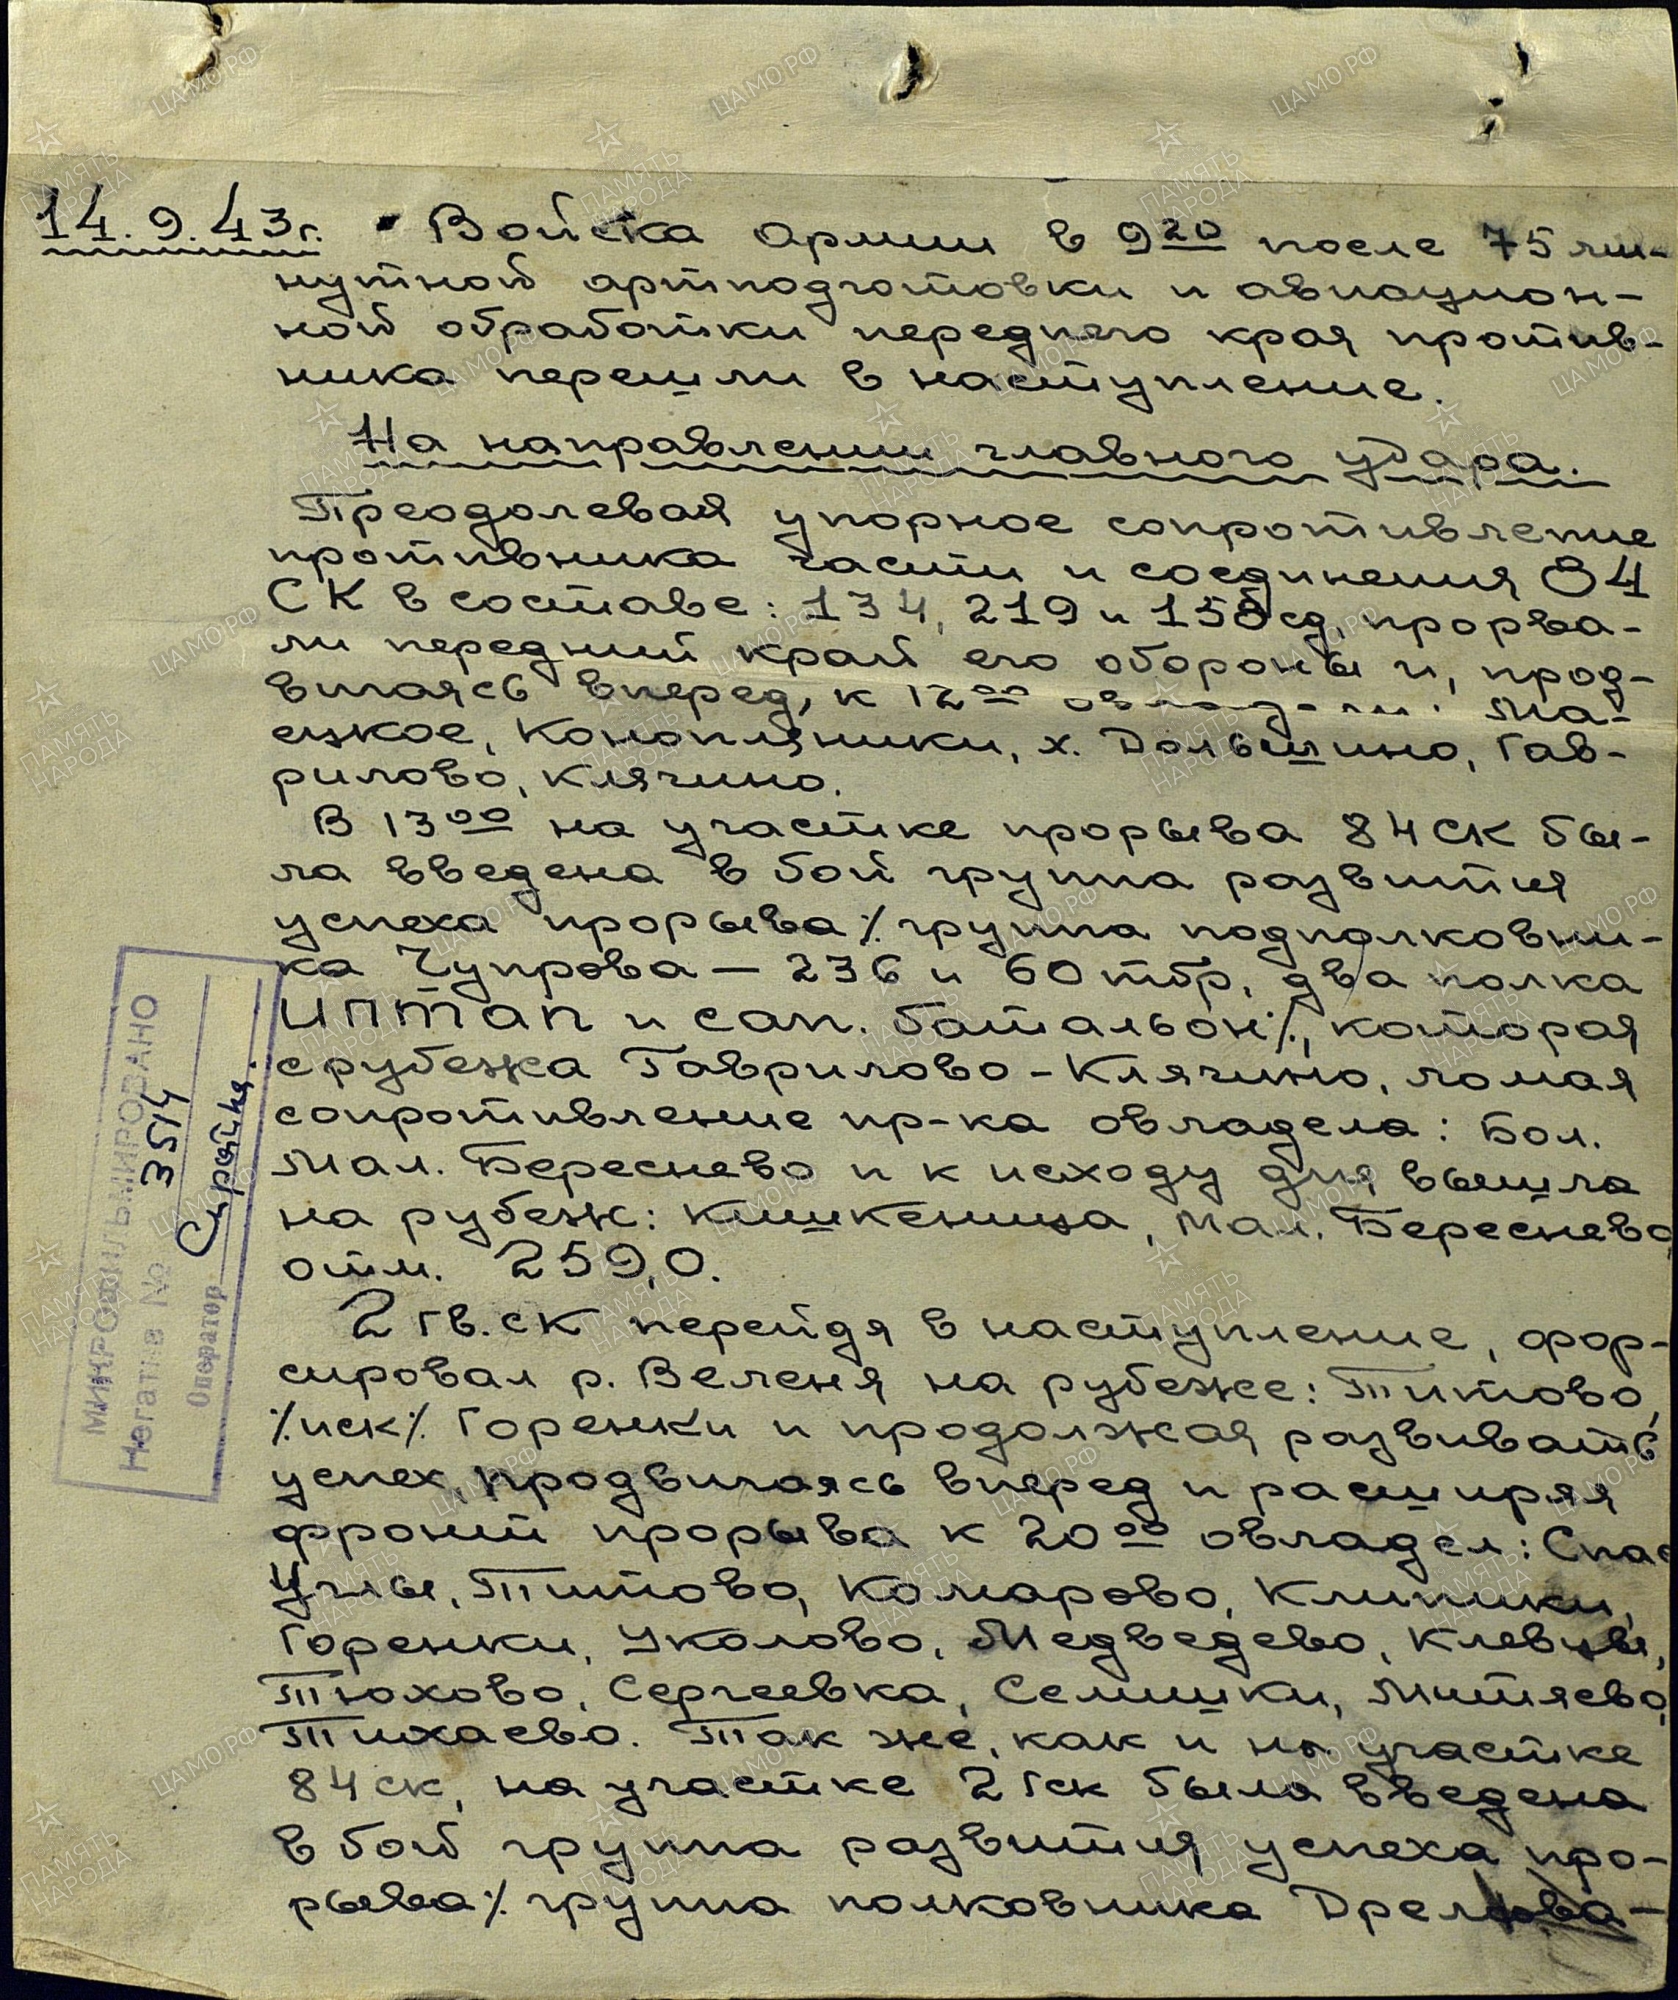 14.9.43г. Войска Армии в 9²⁰ после 75 ми-
нутной артподготовки и авиацион-
ной обработки переднего края против-
ника перешли в наступление.
На направлении главного удара.
Преодолевая упорное сопротивление
противника части и соединения 84
СК в составе: 134, 219 и 158 сд, прорва-
ли передний край его обороны и, прод-
вигаясь вперед, к 12⁰⁰ овладели: Ма-
ецкое, Конопляники, х. Долышино, Гав-
рилово, Клячино.
В 13⁰⁰ на участке прорыва 84 СК бы-
ла введена в бой группа развития
успеха прорыва ٪группа подполковни-
ка Чупрова — 236 и 60 тбр, два полка
ИПТАП и сап. батальон٪, которая
с рубежа Гаврилово - Клячино, ломая
сопротивление пр-ка овладела: Бол.
Мал. Береснево и к исходу дня вышла
на рубеж: Кишкеница, Мал. Береснево
отм. 259,0.
2 гв. ск перейдя в наступление, фор-
сировал р. Веленя на рубеже: Титово,
٪иск٪ Горенки и продолжая развивать
успех, продвигаясь вперед и расширяя
фронт прорыва к 20⁰⁰ овладел: Спас
Углы, Титово, Комарово, Клипики,
Горенки, Уколово, Медведево, Клевцы,
Тюхово, Сергеевка, Селишки, Митяево,
Тихаево. Так же, как и на участке
84 ск, на участке 2 гск была введена
в бой группа развития успеха про-
рыва ٪группа полковника Дремова —
МИКРОФИЛЬМИРОВАНО
Негатив № 3514
Оператор
ПАМЯТЬ НАРОДА
ЦАМО РФ